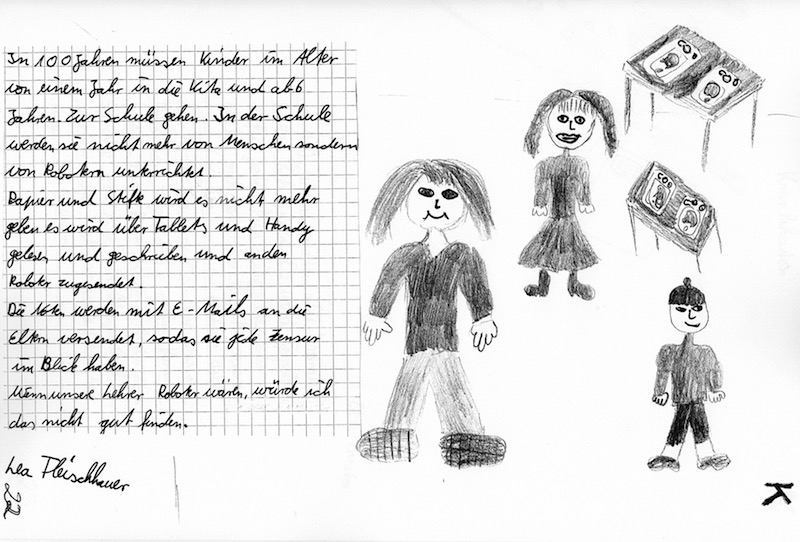 In 100 Jahren müssen Kinder im Alter
von einem Jahr in die Kita und ab 6
Jahren. Zur Schule gehen. In der Schule
werden sie nicht mehr von Menschen sondern
von Robotern unterrichtet.
Papier und Stifte wird es nicht mehr
geben es wird über Tablets und Handy
gelesen und geschrieben und an den
Roboter zugesendet.
Die Noten werden mit E-Mails an die
Eltern versendet, sodas sie jede Zensur
im Blick haben.
Wenn unsere Lehrer Roboter wären, würde ich
das nicht gut finden.
Lea Fleischhauer
K